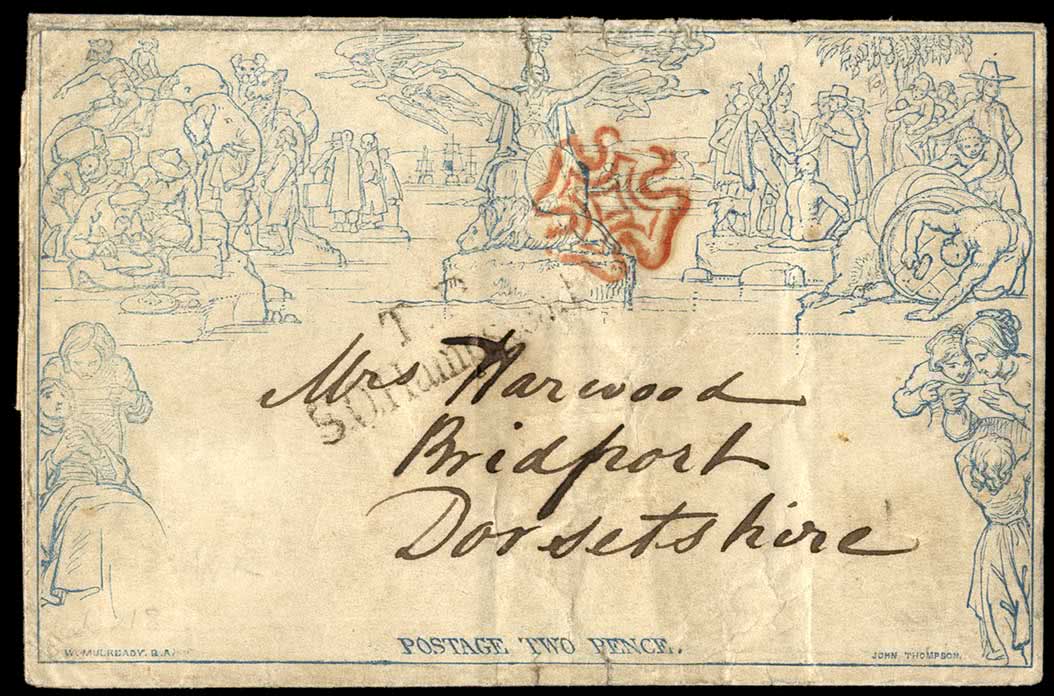 Mrs Harwood
Bridport
Dorsetshire
POSTAGE TWO PENCE.
W. MULREADY. R.A.
JOHN THOMPSON.